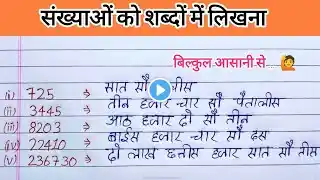 संख्याओं को शब्दों में लिखना
बिल्कुल आसानी से..
(i) 725 ⇒ सात सौ
(ii) 3445 ⇒ तीन हजार चार सौ पैंतालीस
(iii) 8203 ⇒ आठ हजार दो सौ तीन
(iv) 22410 ⇒ बाईस हजार चार सौ दस
(v) 236730 ⇒ दो लाख छत्तीस हजार सात सौ तीस